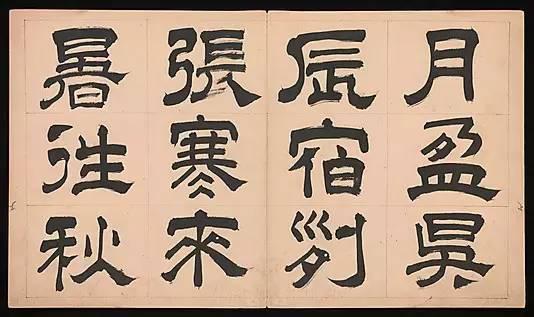 月盈昃
辰宿列
張寒來
暑往秋